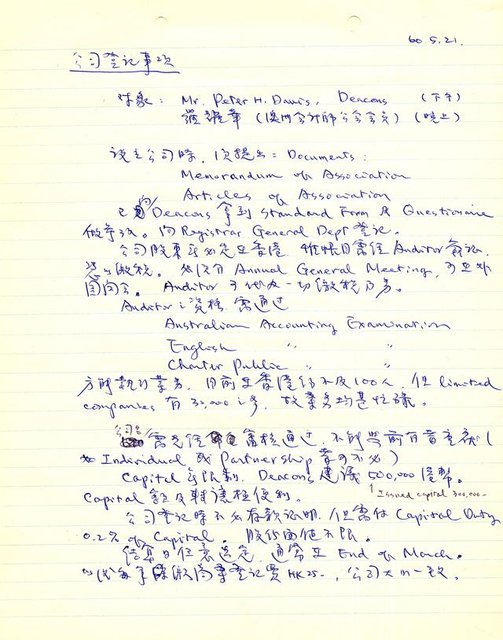 60.5.21.
公司登記事項
對象： Mr. Peter H. Davis, Deacons （下午）
羅 華（澳門會計師公會會員）（晚上）
設立公司時，須提出： Documents:
Memorandum of Association
Articles of Association
已向 Deacons 拿到 Standard Form 及 Questionnaire
做參考。向 Registrar General Dept 登記。
公司股東不必定在香港，惟帳目需經 Auditor
繳稅。必須有 Annual General Meeting，可在外
國開會。 Auditor 可代為一切繳稅事務。
Auditor 之資格，需通過
Australian Accounting Examination
English " "
Charter Public " "
方可執行業務，目前在香港約不及100人，但 limited
companies 有 30,000 家，故業務均甚忙碌。
公司名需先經 審核通過，不能與前有者重複（
Individual 或 Partnership 業者不必）
Capital 無限制， Deacons 建議 500,000 港幣。
Issued capital 300,000-
Capital 款及轉讓極便利。
公司登記時不必存款證明，但需付 Capital Duty
0.2% of Capital. 股份面值不限。
結算日任意選定，通常在 End of March.
以後每年繳商業登記費 HK25-，公司大小一致。